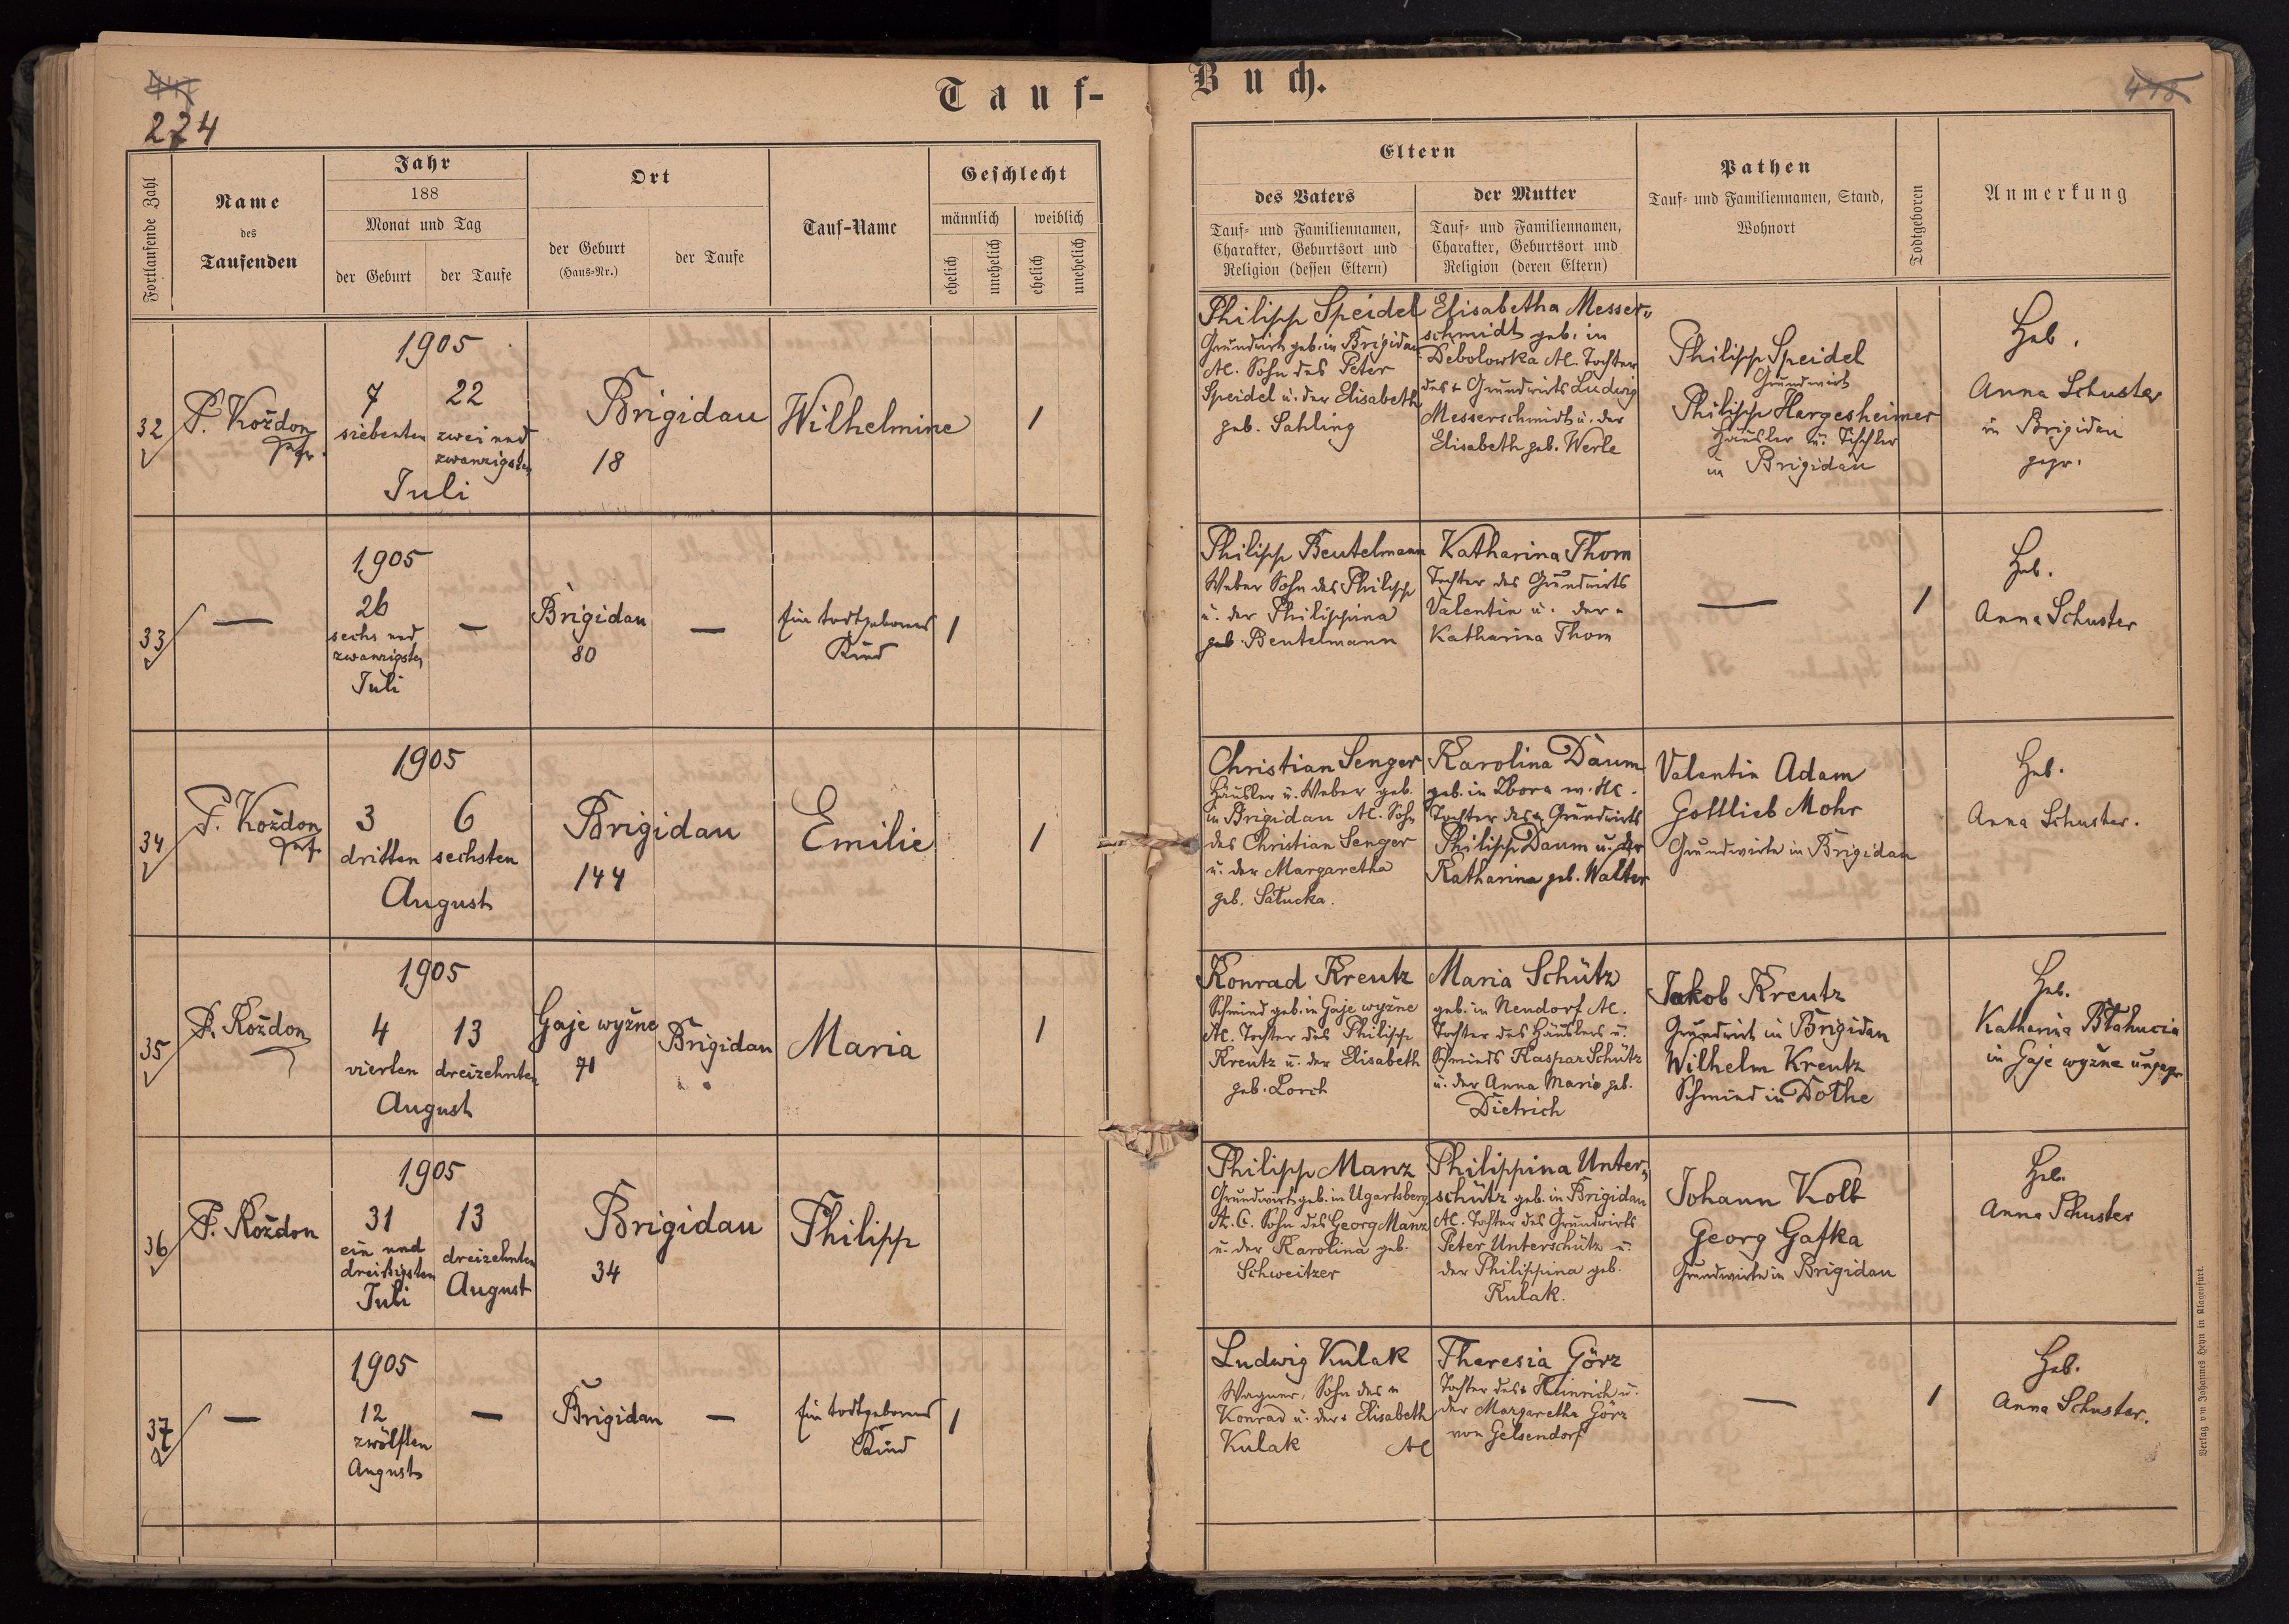 Tauf-
Buch.
274
Fortlaufende Zahl
Name
des
Taufenden
Jahr
188
Monat und Tag
der Geburt
der Taufe
Ort
der Geburt
(Haus-Nr.)
der Taufe
Tauf-Name
Geschlecht
männlich
weiblich
ehelich
unehelich
ehelich
unehelich
Eltern
des Vaters
Tauf- und Familiennamen,
Charakter, Geburtsort und
Religion (dessen Eltern)
der Mutter
Tauf- und Familiennamen,
Charakter, Geburtsort und
Religion (deren Eltern)
Pathen
Tauf- und Familiennamen, Stand,
Wohnort
Todtgeboren
Anmerkung
32
P. Koždon
1905
7
siebenten
22
zwei und
zwanzigsten
Juli
Brigidau
18
Wilhelmine
1
Philipp Speidel
Grundwirt geb. in Brigidau
AC. Sohn des Peter
Speidel u. der Elisabeth
geb. Sahling
Elisabetha Messer-
schmidt geb. in
Debolowka AC. Tochter
des + Grundwirts Ludwig
Messerschmidt u. der
Elisabeth geb. Werle
Philipp Speidel
Grundwirt
Philipp Hargesheimer
Häusler u. Tischler
in Brigidau
Heb.
Anna Schuster
in Brigidau
gepr.
33
—
1905
26
sechs und
zwanzigsten
Juli
—
Brigidau
80
—
Ein todtgebornes
Kind
1
Philipp Beutelmann
Weber Sohn des Philipp
u. der Philippina
geb. Beutelmann
Katharina Thom
Tochter des Grundwirts
Valentin u. der
Katharina Thom
—
1
Heb.
Anna Schuster
34
P. Koždon
1905
3
dritten
6
sechsten
August
Brigidau
144
Emilie
1
Christian Senger
Häusler u. Weber geb.
in Brigidau AC. Sohn
des Christian Senger
u. der Margaretha
geb. Sałucka.
Karolina Daum
geb. in Zbora w. HC.
Tochter des Grundwirts
Philipp Daum u. der
Katharina geb. Walter
Valentin Adam
Gottlieb Mohr
Grundwirte in Brigidau
Heb.
Anna Schuster.
35
P. Koždon
1905
4
vierten
13
dreizehnten
August
Gaje wyžne
71
Brigidau
Maria
1
Konrad Kreutz
Schmied geb. in Gaje wyžne
AC. Tochter des Philipp
Kreutz u. der Elisabeth
geb. Lorch
Maria Schütz
geb. in Neudorf AC.
Tochter des Häuslers u.
Schmieds Kaspar Schütz
u. der Anna Maria geb.
Dietrich
Jakob Kreutz
Grundwirt in Brigidau
Wilhelm Kreutz
Schmied in Dothe
Heb.
Katharina
in Gaje wyžne ungepr.
36
P. Koždon
1905
31
ein und
dreißigsten
Juli
13
dreizehnten
August
Brigidau
34
Philipp
Philipp Manz
Grundwirt geb. in Ugartsberg
A. C. Sohn des Georg Manz
u. der Karolina geb.
Schweitzer
Philippina Unter-
schütz geb. in Brigidau
AC. Tochter des Grundwirts
Peter Unterschütz u.
der Philippina geb.
Kulak.
Johann Kolb
Georg Gafka
Grundwirte in Brigidau
Heb.
Anna Schuster
37
—
1905
12
zwölften
August
—
Brigidau
—
Ein todtgebornes
Kind
1
Ludwig Kulak
Wagner, Sohn des
Konrad u. der + Elisabeth
Kulak AC
Theresia Görz
Tochter des + Heinrich u.
der Margaretha Görz
von Gelsendorf
—
1
Heb.
Anna Schuster.
Verlag von Johannes Heyn in Klagenfurt.